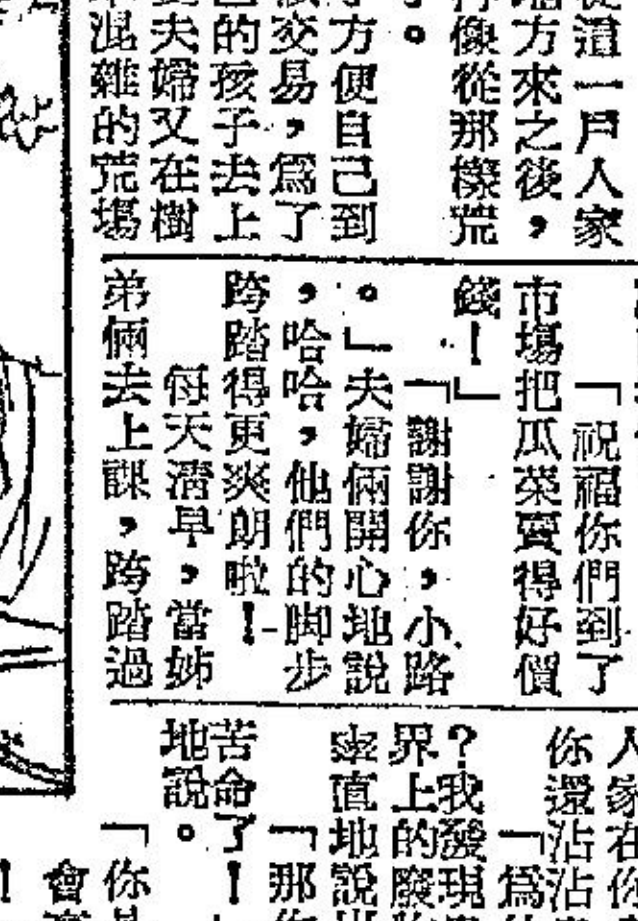 這一戶人家
方來之後，
像從那樣荒
。
方便自己到
交易，爲了
的孩子去上
夫婦又在樹
混雜的荒塲
「祝福你們到了
市塲把瓜菜賣得好價
錢！」
「謝謝你，小路
。」夫婦倆開心地說
，哈哈，他們的脚步
跨踏得更爽朗啦！
每天淸早，當姊
弟倆去上課，跨踏過
人家在你
你還沾沾
「爲
？我發現
界上的廢
直地說
「那
苦命了！
地說。
「你
會